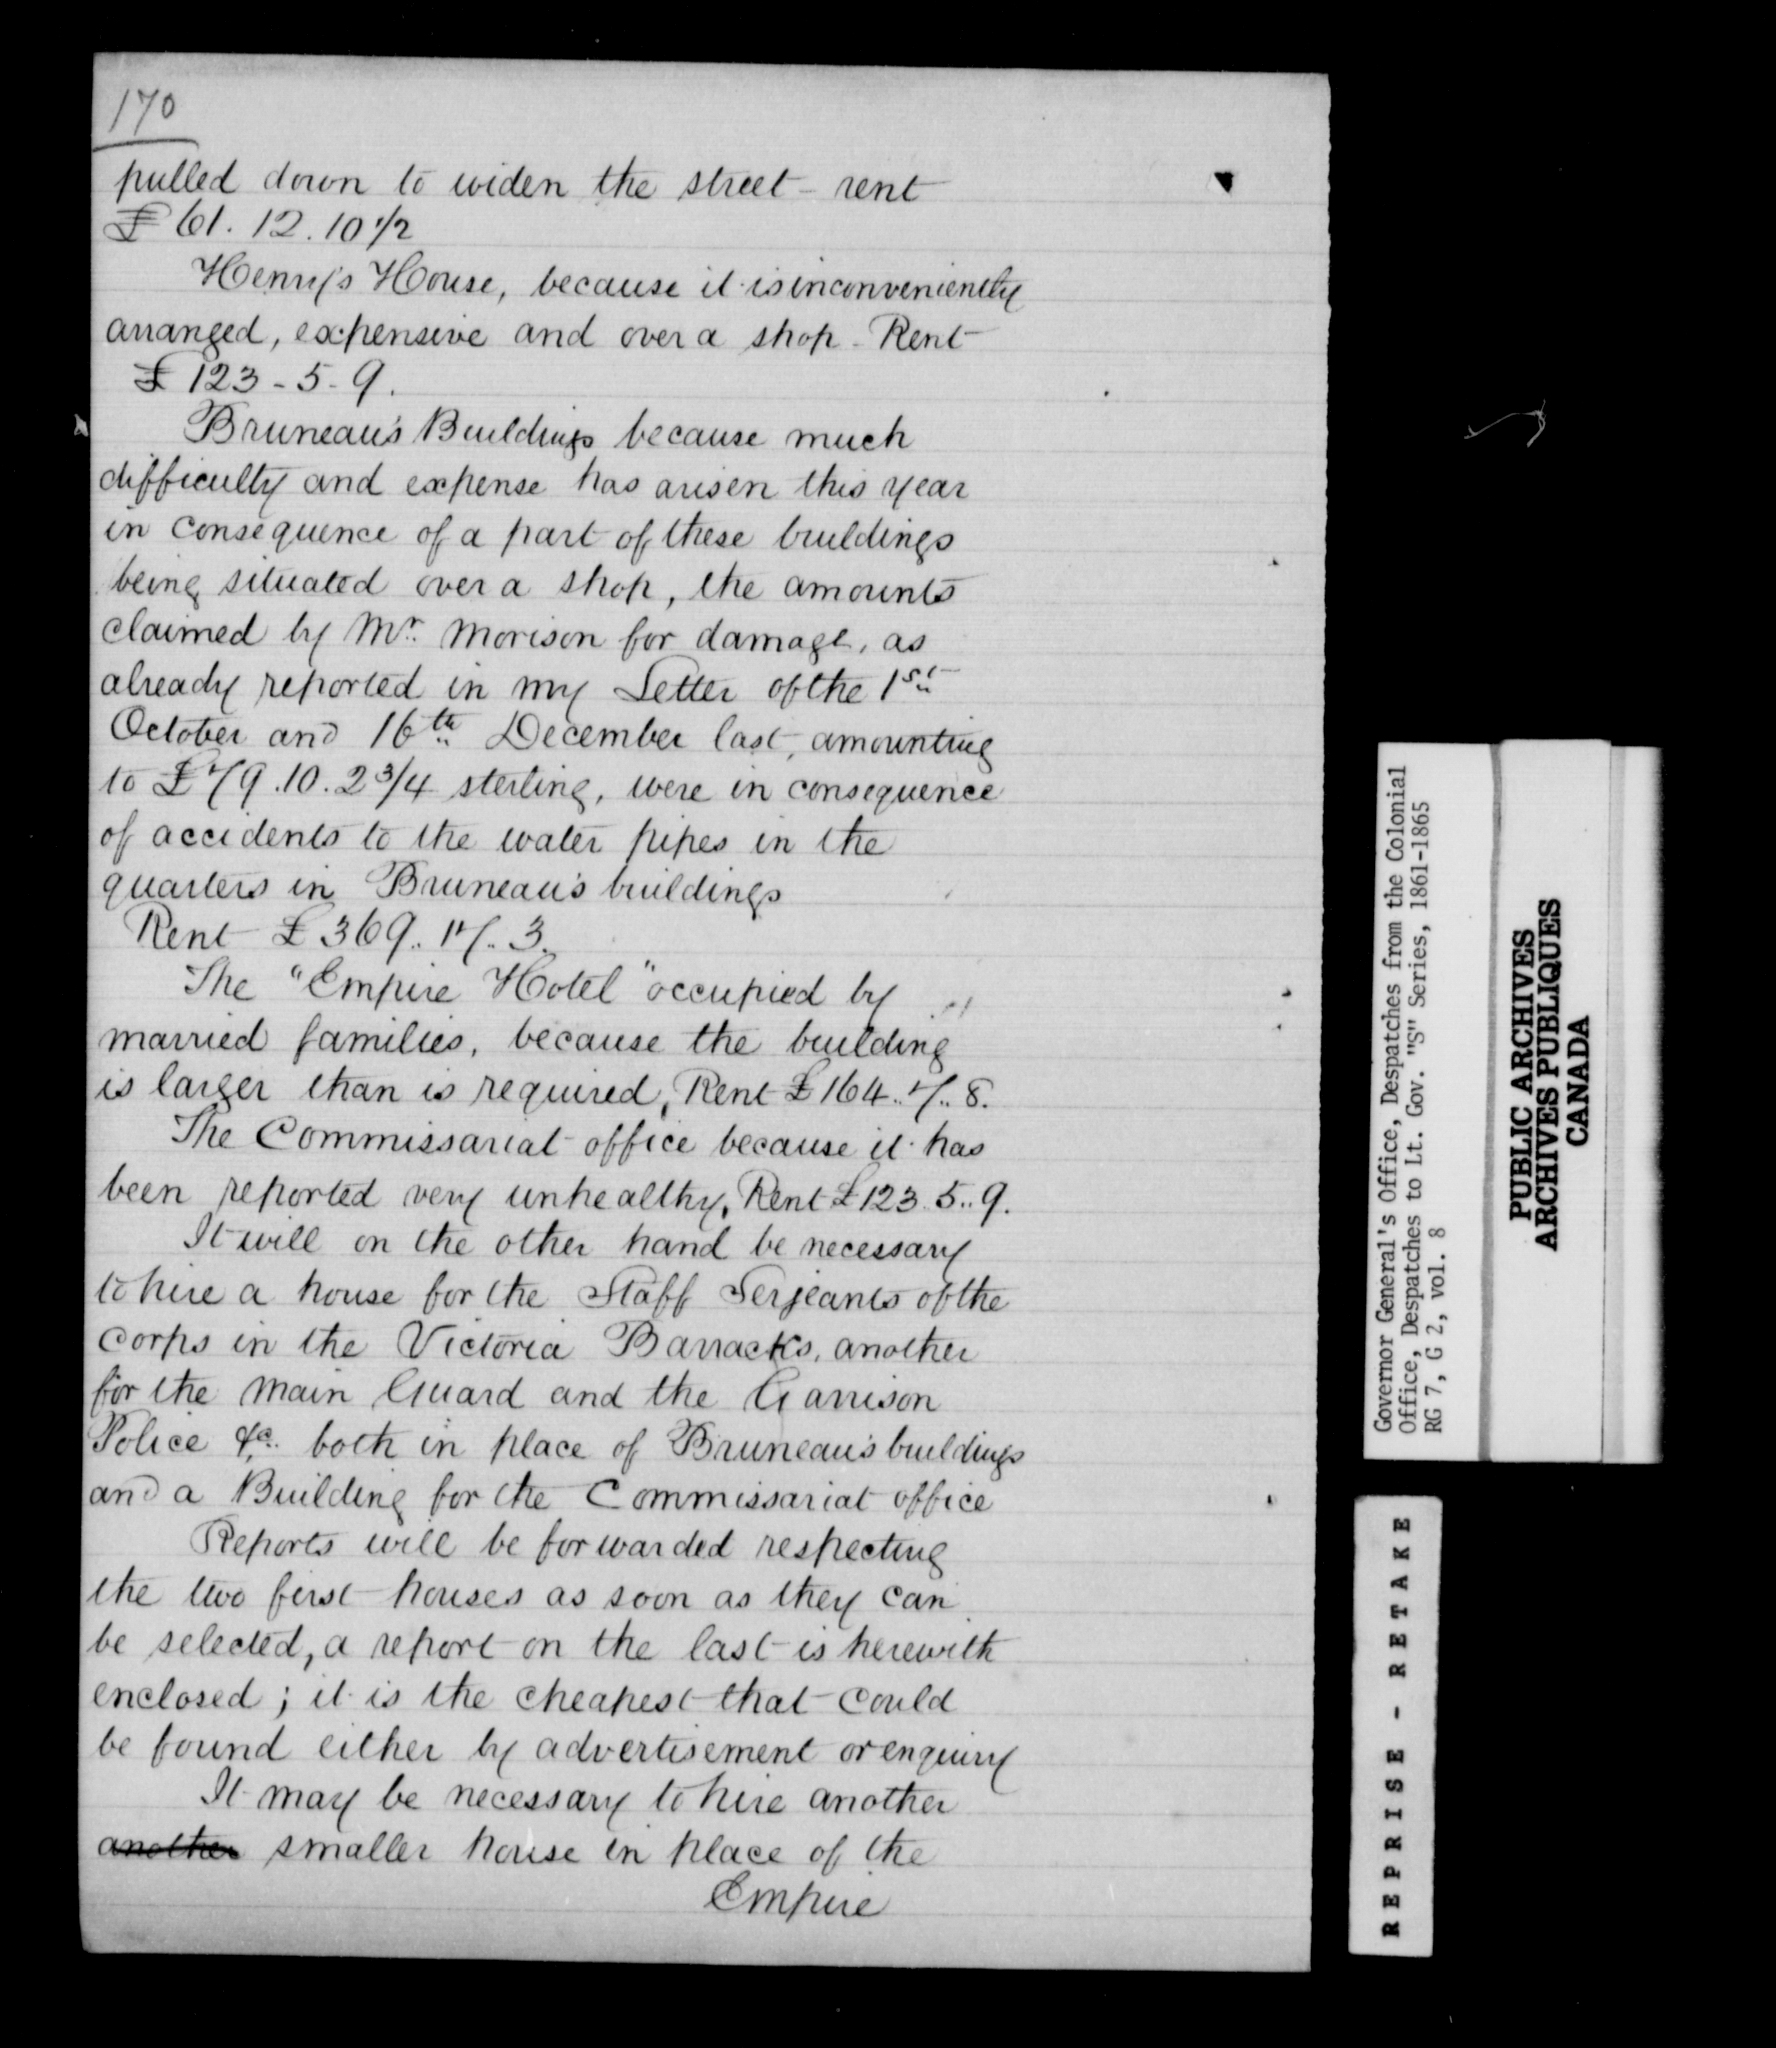 170
pulled down to widen the street - rent
£ 61. 12. 10 1/2
Henry's House, because it is inconveniently
arranged, expensive and over a shop - Rent
£ 123 - 5 - 9.
Bruneau's Buildings because much
difficulty and expense has arisen this year
in consequence of a part of these buildings
being situated over a shop, the amounts
claimed by Mr. Morison for damage, as
already reported in my Letter of the 1st
October and 16th December last, amounting
to £79.10.2 3/4 sterling, were in consequence
of accidents to the water pipes in the
quarters in Bruneau's buildings
Rent £369.. 17.. 3.
The "Empire Hotel" occupied by
married families, because the building
is larger than is required, Rent £164.. 7.. 8.
The Commissariat office because it has
been reported very unhealthy, Rent £123.. 5.. 9.
It will on the other hand be necessary
to hire a house for the Staff Serjeants of the
corps in the Victoria Barracks, another
for the Main Guard and the Garrison
Police &c. both in place of Bruneau's buildings
and a Building for the Commissariat office
Reports will be forwarded respecting
the two first houses as soon as they can
be selected, a report on the last is herewith
enclosed; it is the cheapest that could
be found either by advertisement or enquiry
It may be necessary to hire another
another smaller house in place of the
Empire
Governor General's Office, Despatches from the Colonial
Office, Despatches to Lt. Gov. "S" Series, 1861-1865
RG 7, G 2, vol. 8
PUBLIC ARCHIVES
ARCHIVES PUBLIQUES
CANADA
REPRISE - RETAKE